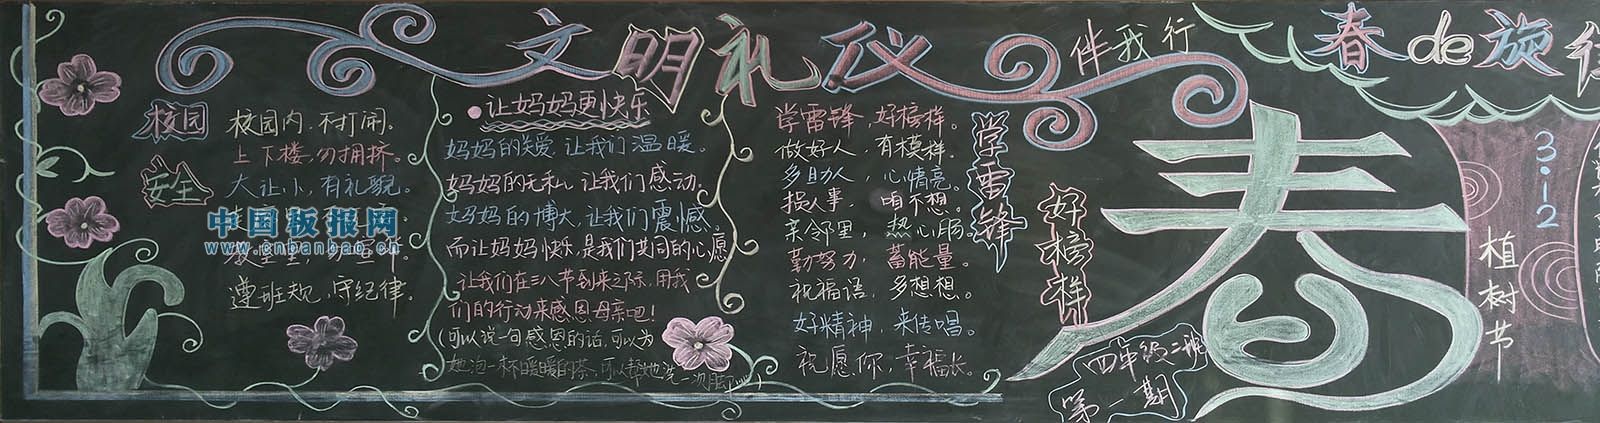 文明礼仪
伴我行
校园
安全
校园内,不打闹。
上下楼,勿拥挤。
大让小,有礼貌。
遵班规,守纪律。
中国板报网
www.cnbanbao.cn
让妈妈更快乐
妈妈的关爱,让我们温暖。
妈妈的无私,让我们感动。
妈妈的博大,让我们震憾,
而让妈妈快乐,是我们共同的心愿
让我们在三八节到来之际,用我
们的行动来感恩母亲吧!
(可以说一句感恩的话,可以为
她泡一杯暖暖的茶,可以帮她洗一次脚……)
学雷锋,好榜样。
做好人,有模样。
多助人,心情亮。
损人事,咱不想。
亲邻里,热心肠。
勤努力,蓄能量。
祝福语,多想想。
好精神,来传唱。
祝愿你,幸福长。
学雷锋
好榜样
春
四年级二班
第一期
春de旅行
3·12
植树节